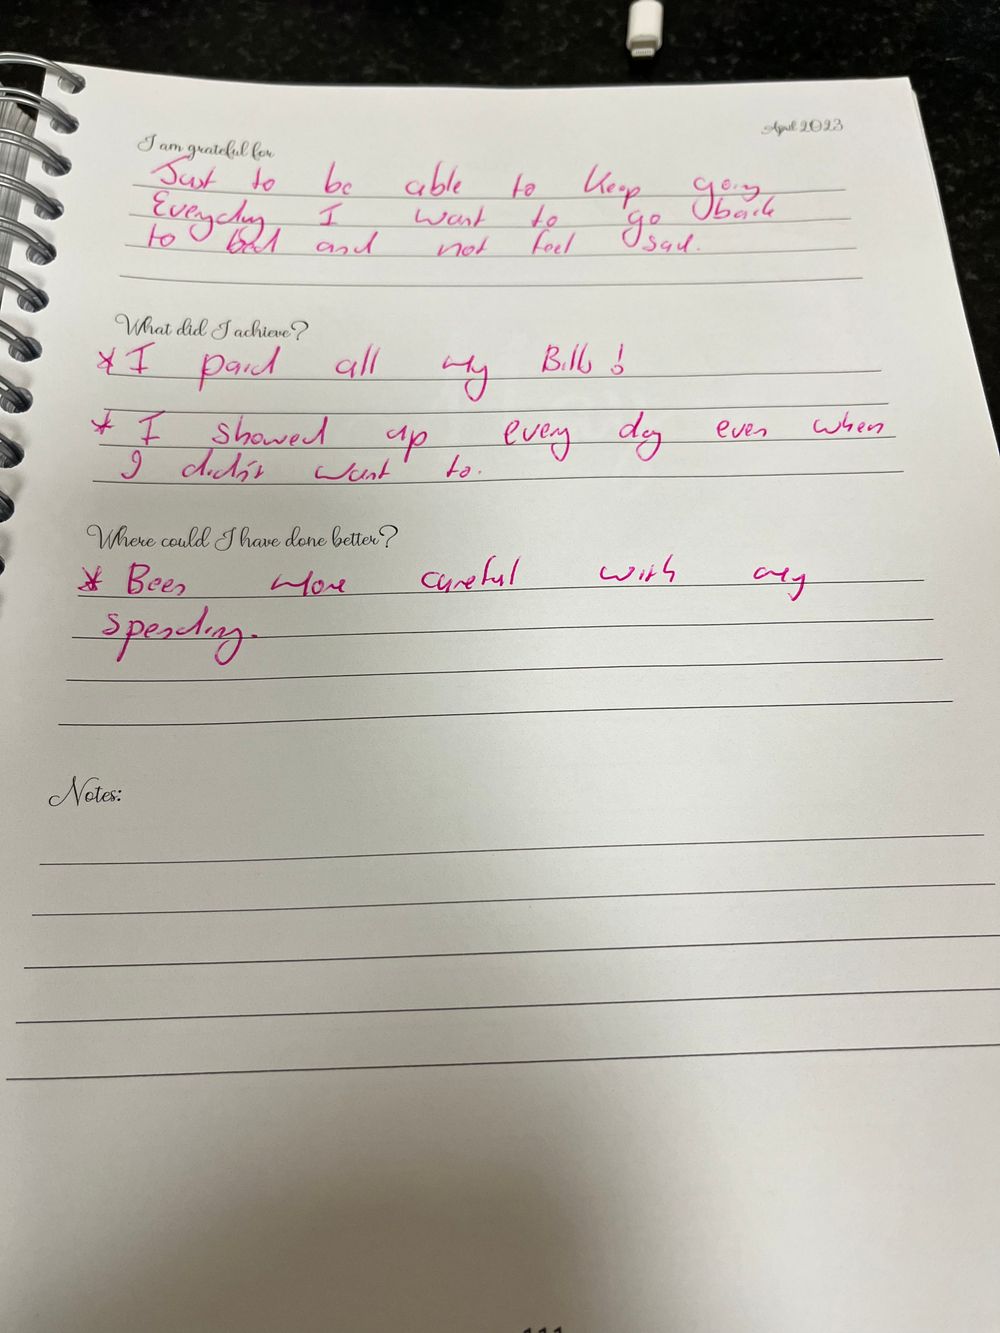 April 2023
I am grateful for
Just to be able to keep going
Everyday I want to go back
to bed and not feel sad.
What did I achieve?
* I paid all my Bills!
* I showed up every day even when
I didn't want to.
Where could I have done better?
* Been more careful with my
spending.
Notes: